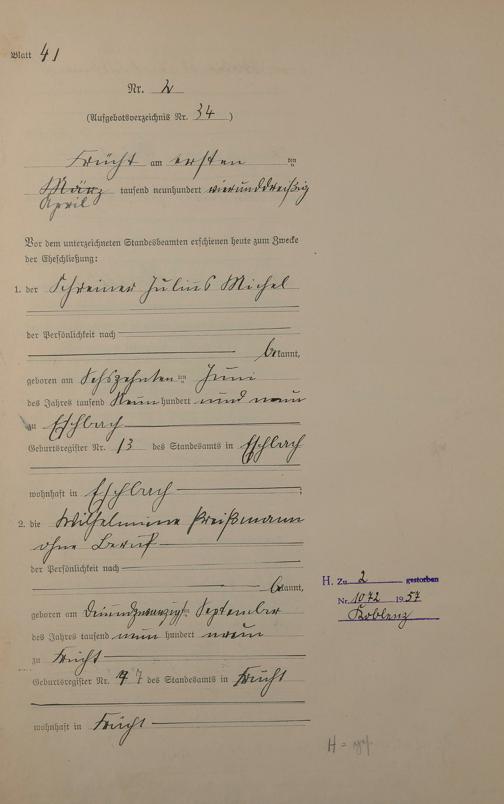 Blatt 41
Nr. 2
(Aufgebotsverzeichnis Nr. 34)
Frücht am ersten ten
März tausend neunhundert vierunddreißig
April
Vor dem unterzeichneten Standesbeamten erschienen heute zum Zwecke
der Eheschließung:
1. der Schreiner Julius Michel
der Persönlichkeit nach
bekannt,
geboren am Sechszehnten ten Juni
des Jahres tausend Neun hundert und neun
zu Eschbach
Geburtsregister Nr. 13 des Standesamts in Eschbach
wohnhaft in Eschbach ;
2. die Wilhelmine Preißmann
ohne Beruf
der Persönlichkeit nach
bekannt,
geboren am September
des Jahres tausend neun hundert neun
zu Frücht
Geburtsregister Nr. 7 des Standesamts in Frücht
wohnhaft in Frücht
H. Zu 2 gestorben
Nr. 1072 1957
Koblenz
H =